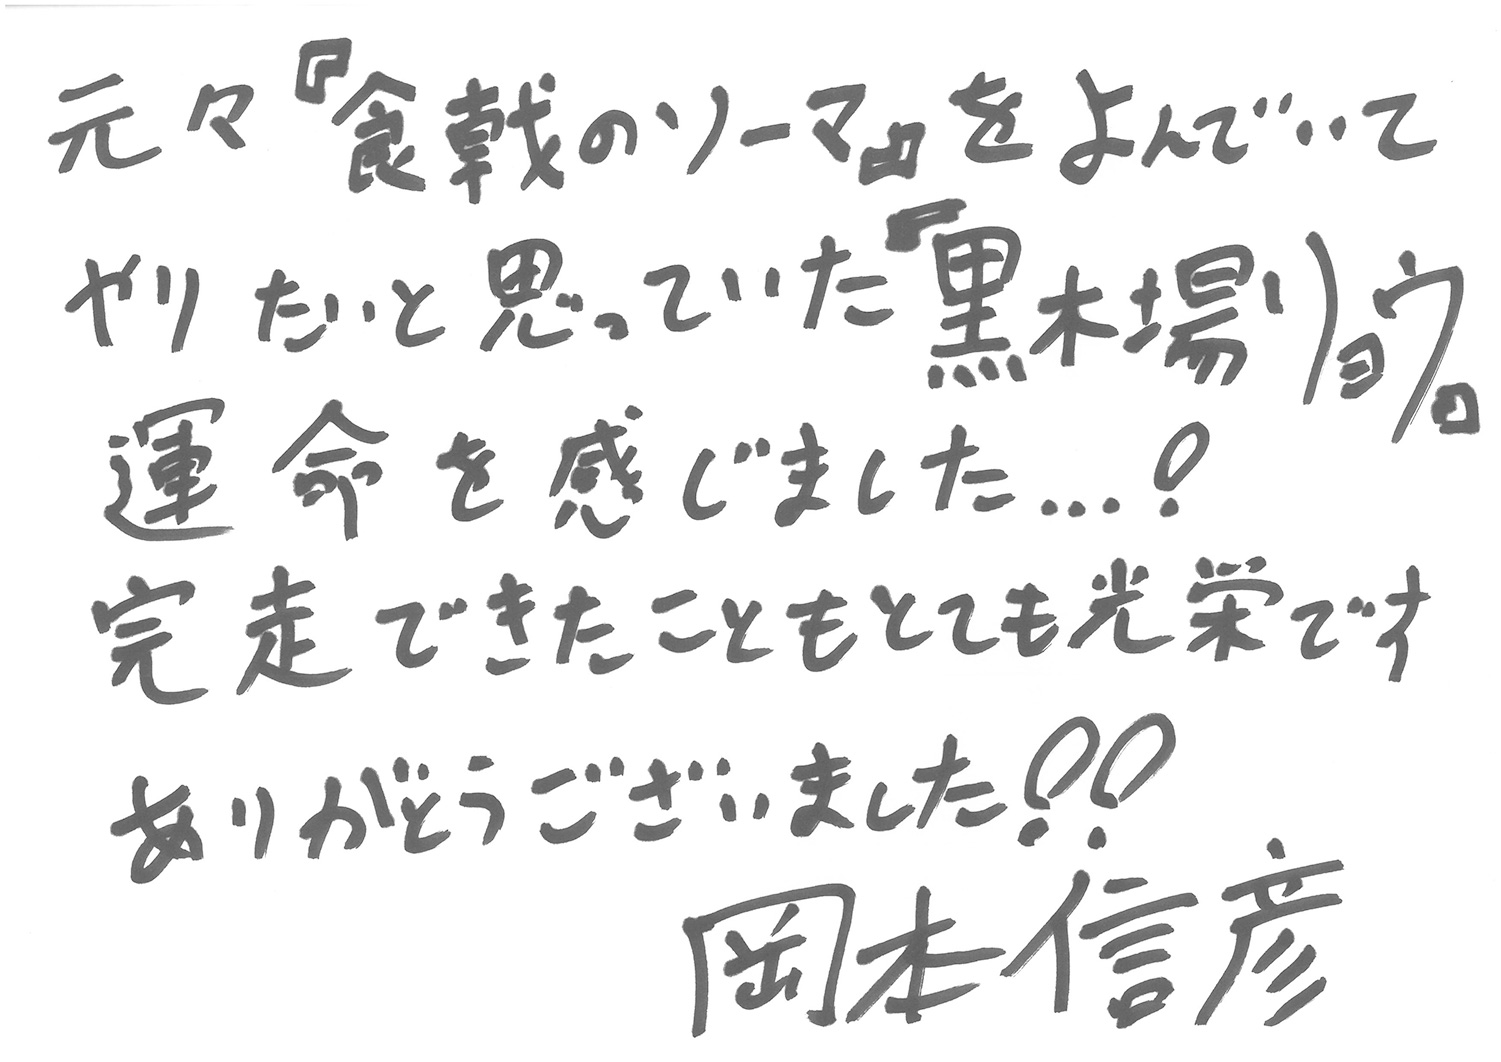 元々『食戟のソーマ』をよんでいて
やりたいと思っていた『黒木場リョウ』
運命を感じました…!
完走できたこともとても光栄です
ありがとうございました!!
岡本信彦